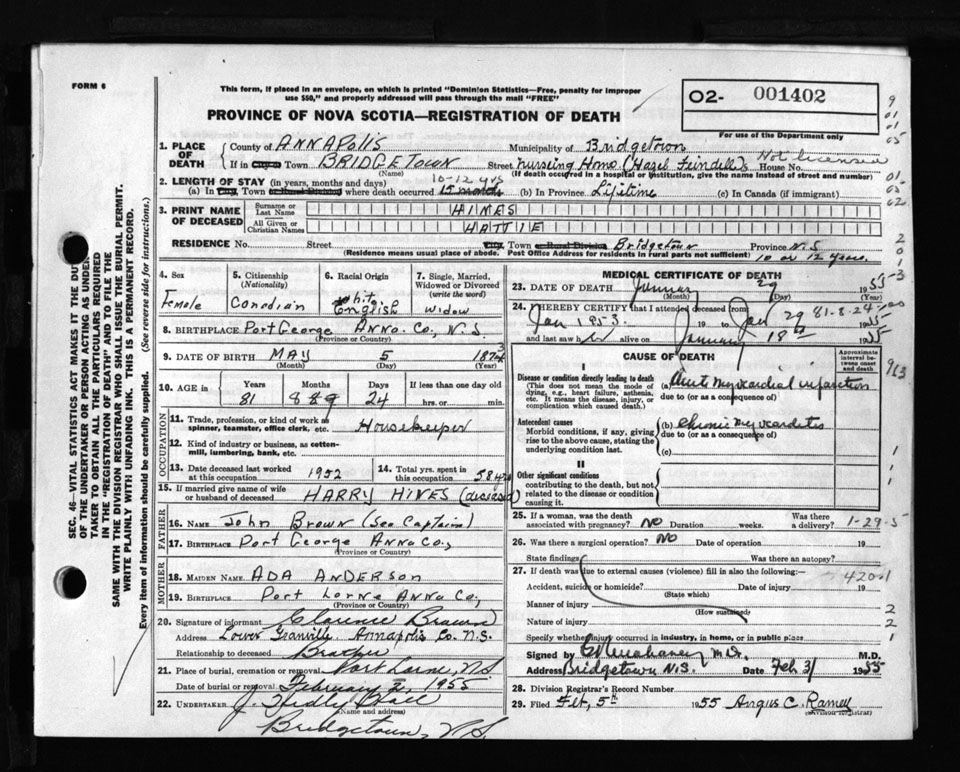 FORM 6
This form, if placed in an envelope, on which is printed "Dominion Statistics—Free, penalty for improper
use $50," and properly addressed will pass through the mail "FREE"
PROVINCE OF NOVA SCOTIA—REGISTRATION OF DEATH
02- 001402
For use of the Department only
1. PLACE OF DEATH
County of ANNAPOLIS Municipality of Bridgetown
If in City or Town BRIDGETOWN Street nurseing Home (Hazel House No. Not licensed
(Name) (If death occurred in a hospital or institution, give the name instead of street and number)
2. LENGTH OF STAY (in years, months and days) 10-12 yrs
(a) In City, Town or Rural Division where death occurred 15 months (b) In Province Lifetime (c) In Canada (if immigrant)
3. PRINT NAME OF DECEASED
Surname or Last Name HINES
All Given or Christian Names HATTIE
RESIDENCE No. Street City, Town or Rural Division Bridgetown Province N.S
(Residence means usual place of abode. Post Office Address for residents in rural parts not sufficient) 10 or 12 years.
4. Sex Female
5. Citizenship (Nationality) Canadian
6. Racial Origin White English
7. Single, Married, Widowed or Divorced (write the word) Widow
8. BIRTHPLACE Port George Anna. Co, N.S.
(Province or Country)
9. DATE OF BIRTH MAY 5 1874 3
(Month) (Day) (Year)
10. AGE IN Years Months Days If less than one day old
81 8 24 hrs. or min.
OCCUPATION
11. Trade, profession, or kind of work as spinner, teamster, office clerk, etc. Housekeeper
12. Kind of industry or business, as cotton-mill, lumbering, bank, etc.
13. Date deceased last worked at this occupation 1952
14. Total yrs. spent in this occupation 58
15. If married give name of wife or husband of deceased HARRY HINES (deceased)
FATHER
16. NAME John Brown (Sea Captain)
17. BIRTHPLACE Port George Anna Co.,
(Province or Country)
MOTHER
18. MAIDEN NAME ADA ANDERSON
19. BIRTHPLACE Port Lorne Anna Co,
(Province or Country)
20. Signature of informant Clarence Brown
Address Lower Granville. Annapolis Co. N.S.
Relationship to deceased Brother
21. Place of burial, cremation or removal Port Lorne, NS
Date of burial or removal February 2, 1955
22. UNDERTAKER J.
(Name and address)
Bridgetown, N.S.
MEDICAL CERTIFICATE OF DEATH
23. DATE OF DEATH January 29 1955
(Month) (Day) (Year)
24. I HEREBY CERTIFY that I attended deceased from
Jan 1953. 19 to Jan 29 1955
81-8-24
and last saw h alive on January 18th 1955
CAUSE OF DEATH
Approximate interval between onset and death
I
Disease or condition directly leading to death (a) Acute Myocardial infarction
(This does not mean the mode of dying, e.g., heart failure, asthenia, etc. It means the disease, injury, or complication which caused death.
due to (or as a consequence of)
Antecedent causes (b) Chronic Myocarditis
Morbid conditions, if any, giving rise to the above cause, stating the underlying condition last.
due to (or as a consequence of)
(c)
II
Other significant conditions
contributing to the death, but not related to the disease or condition causing it.
25. If a woman, was the death associated with pregnancy? NO Duration weeks. Was there a delivery? 1-29-5
26. Was there a surgical operation? NO Date of operation 19
State findings Was there an autopsy?
27. If death was due to external causes (violence) fill in also the following:—
Accident, suicide or homicide? Date of injury 19
420-1
(State which)
Manner of injury
(How sustained)
Nature of injury
Specify whether injury occurred in industry, in home, or in public place
Signed by M.D. M.D.
Address Bridgetown N.S. Date Feb 3/ 1955
28. Division Registrar's Record Number
29. Filed Feb. 5th 1955 Angus C. Ramey
(Division Registrar)
SEC. 46—VITAL STATISTICS ACT MAKES IT THE DUTY
OF THE UNDERTAKER OR PERSON ACTING AS UNDER-
TAKER TO OBTAIN ALL THE PARTICULARS REQUIRED
IN THE "REGISTRATION OF DEATH" AND TO FILE THE
SAME WITH THE DIVISION REGISTRAR WHO SHALL ISSUE THE BURIAL PERMIT.
WRITE PLAINLY WITH UNFADING INK. THIS IS A PERMANENT RECORD.
Every item of information should be carefully supplied. (See reverse side for instructions.)